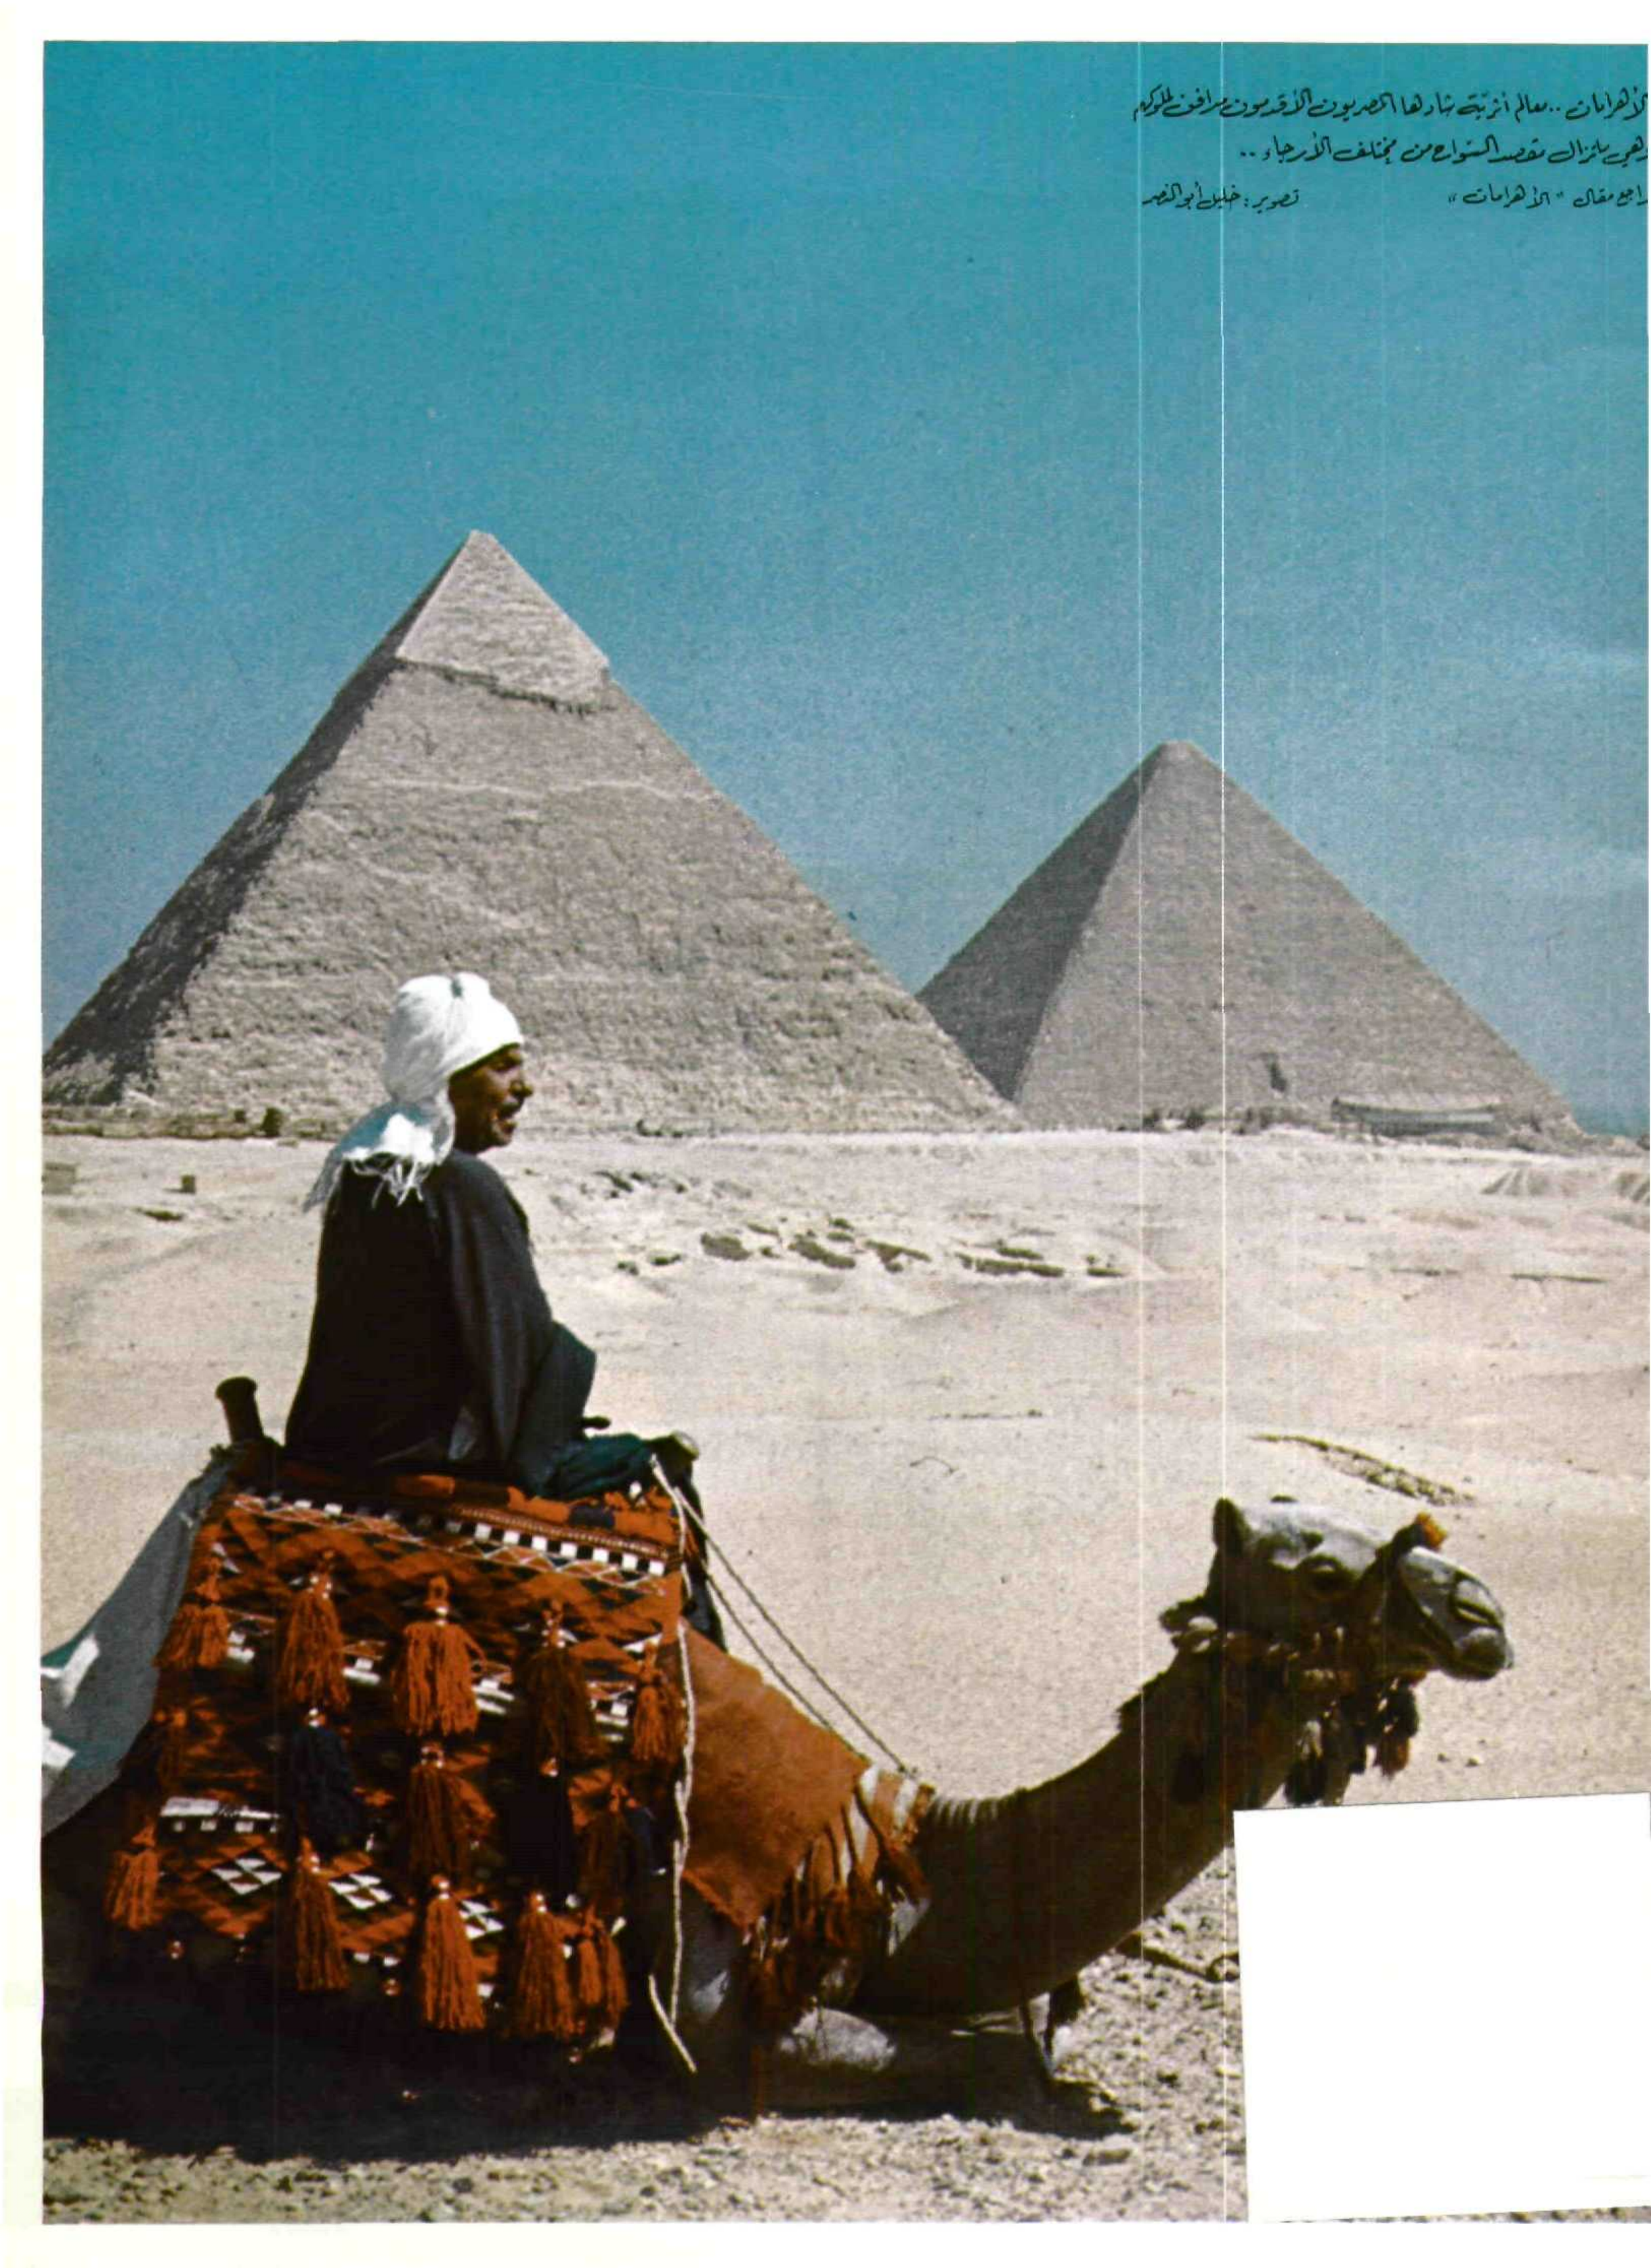 الأهرامات .. معالم أثرية شادها المصريون الأقدمون مدافن لملوكهم
وهي ماتزال مقصد السّواح من مختلف الأرجاء ..
راجع مقال "الأهرامات" تصوير : خليل أبو النصر